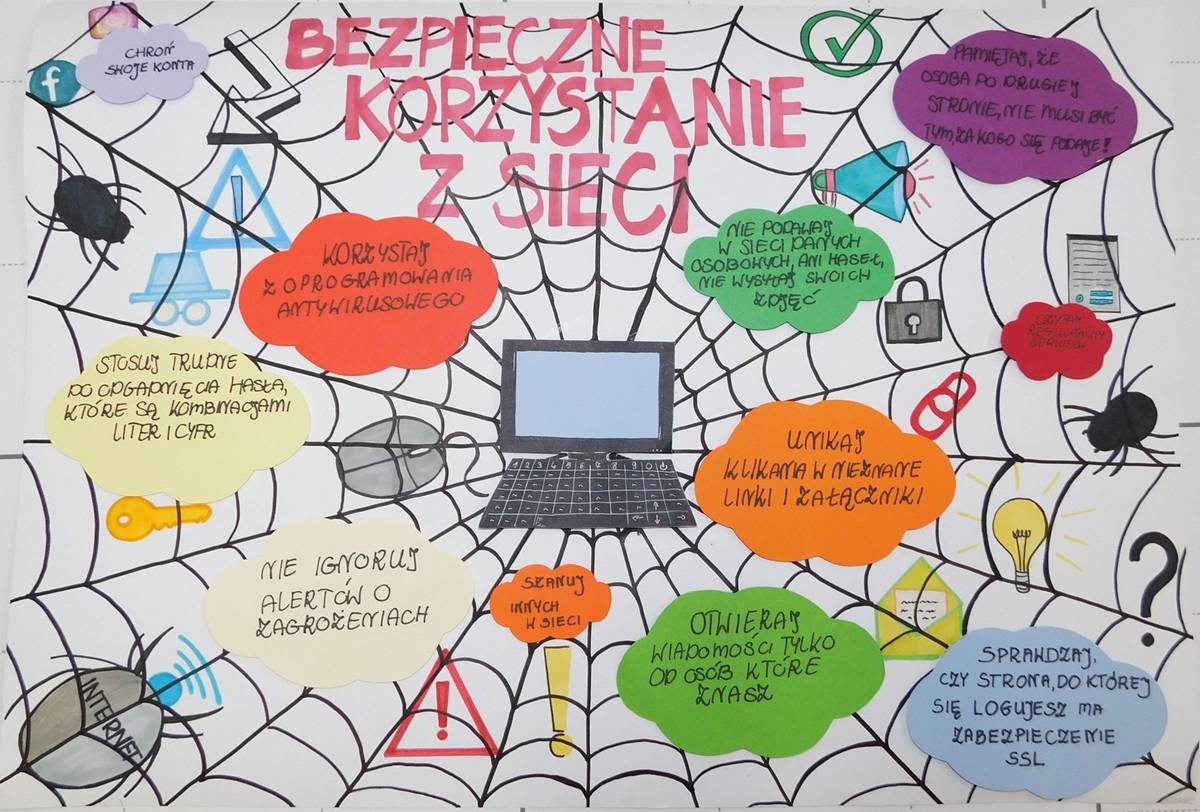 BEZPIECZNE
KORZYSTANIE
Z SIECI
CHROŃ
SWOJE KONTA
f
PAMIĘTAJ, ŻE
OSOBA PO DRUGIEJ
STRONIE, NIE MUSI BYĆ
TYM, ZA KOGO SIĘ PODAJE!
KORZYSTAJ
Z OPROGRAMOWANIA
ANTYWIRUSOWEGO
NIE PODAWAJ
W SIECI DANYCH
OSOBOWYCH, ANI HASEŁ,
NIE WYSYŁAJ SWOICH
ZDJĘĆ
CZYTAJ
REGULAMINY
SERWISÓW
STOSUJ TRUDNE
DO ODGADNIĘCIA HASŁA,
KTÓRE SĄ KOMBINACJAMI
LITER I CYFR
UNIKAJ
KLIKANIA W NIEZNANE
LINKI I ZAŁĄCZNIKI
1 2 3 4 5 6 7 8 9 0
NIE IGNORUJ
ALERTÓW O
ZAGROŻENIACH
SZANUJ
INNYCH
W SIECI
OTWIERAJ
WIADOMOŚCI TYLKO
OD OSÓB KTÓRE
ZNASZ
SPRAWDZAJ,
CZY STRONA, DO KTÓREJ
SIĘ LOGUJESZ MA
ZABEZPIECZENIE
SSL
INTERNET